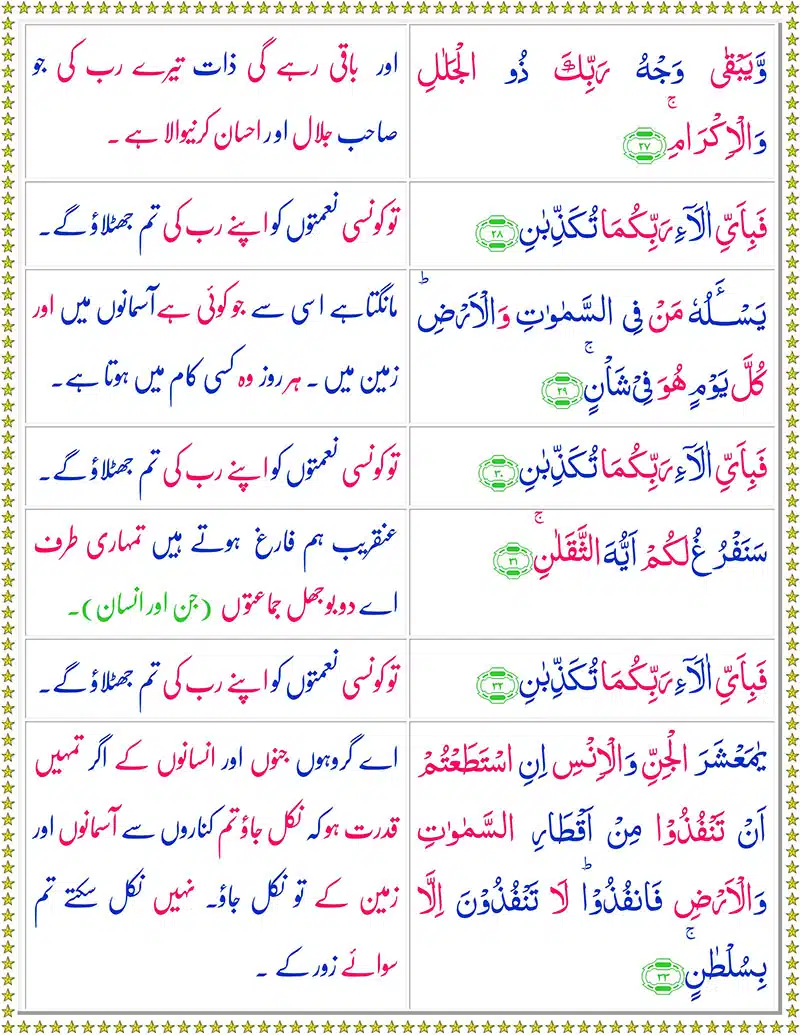 وَّیَبْقٰی وَجْهُ رَبِّكَ ذُو الْجَلٰلِ
وَالْاِكْرَامِۚ ۲۷
اور باقی رہے گی ذات تیرے رب کی جو
صاحب جلال اور احسان کرنیوالا ہے ۔
فَبِاَیِّ اٰلَآءِ رَبِّكُمَا تُكَذِّبٰنِ ۲۸
تو کونسی نعمتوں کو اپنے رب کی تم جھٹلاؤ گے۔
یَسْـَٔلُهٗ مَنْ فِی السَّمٰوٰتِ وَالْاَرْضِؕ
كُلَّ یَوْمٍ هُوَ فِیْ شَاْنٍۚ ۲۹
مانگتا ہے اسی سے جو کوئی ہے آسمانوں میں اور
زمین میں ۔ ہر روز وہ کسی کام میں ہوتا ہے۔
فَبِاَیِّ اٰلَآءِ رَبِّكُمَا تُكَذِّبٰنِ ۳۰
تو کونسی نعمتوں کو اپنے رب کی تم جھٹلاؤ گے۔
سَنَفْرُغُ لَكُمْ اَیُّهَ الثَّقَلٰنِۚ ۳۱
عنقریب ہم فارغ ہوتے ہیں تمہاری طرف
اے دو بوجھل جماعتوں (جن اور انسان)۔
فَبِاَیِّ اٰلَآءِ رَبِّكُمَا تُكَذِّبٰنِ ۳۲
تو کونسی نعمتوں کو اپنے رب کی تم جھٹلاؤ گے۔
یٰمَعْشَرَ الْجِنِّ وَالْاِنْسِ اِنِ اسْتَطَعْتُمْ
اَنْ تَنْفُذُوْا مِنْ اَقْطَارِ السَّمٰوٰتِ
وَالْاَرْضِ فَانْفُذُوْاؕ لَا تَنْفُذُوْنَ اِلَّا
بِسُلْطٰنٍۚ ۳۳
اے گروہوں جنوں اور انسانوں کے اگر تمہیں
قدرت ہو کہ نکل جاؤ تم کناروں سے آسمانوں اور
زمین کے تو نکل جاؤ۔ نہیں نکل سکتے تم
سوائے زور کے ۔